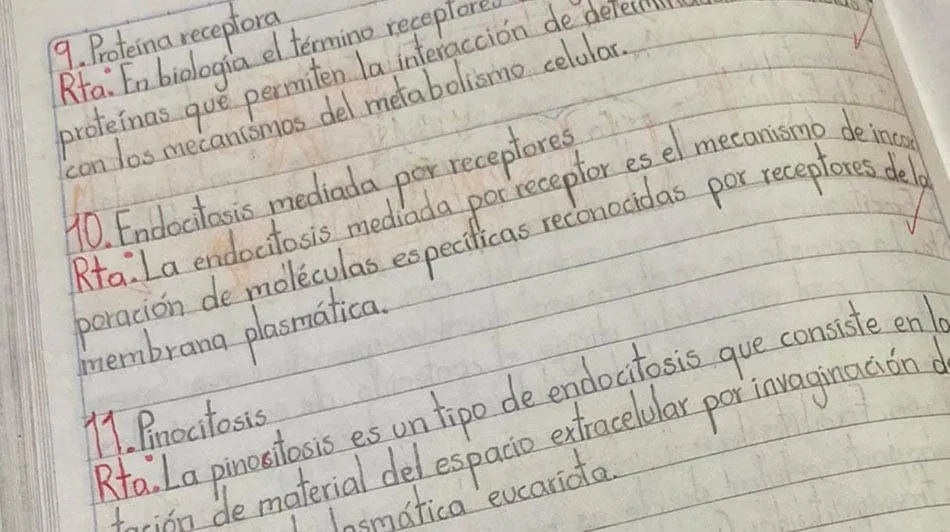 9. Proteína receptora
Rta: En biología el término receptores
proteínas que permiten la interacción de
con los mecanismos del metabolismo celular.
10. Endocitosis mediada por receptores
Rta: La endocitosis mediada por receptor es el mecanismo de incor
poración de moléculas específicas reconocidas por receptores de la
membrana plasmática.
11. Pinocitosis
Rta: La pinocitosis es un tipo de endocitosis que consiste en la
de material del espacio extracelular por invaginación de
eucariota.